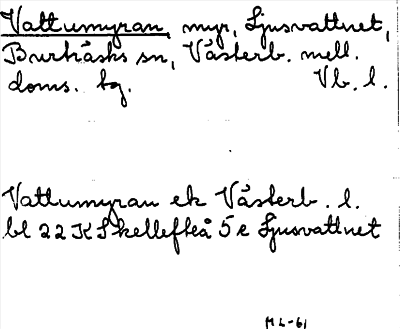 Vattumyran, myr, Ljusvattnet,
Burträsks sn, Västerb. mell.
doms. tg. Vb. l.
Vattumyran ek Västerb. l.
bl 22 K Skellefteå 5 e Ljusvattnet
ML-61